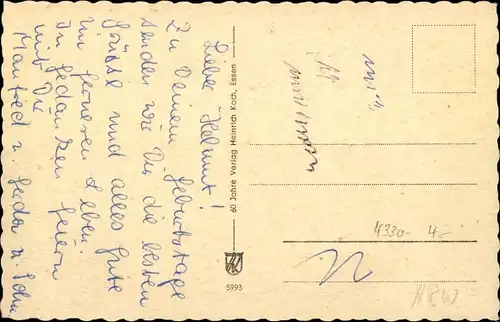 Lieber Helmut!
Zu Deinem Geburtstage
senden wir Dir die besten
Grüsse und alles Gute
im ferneren Leben.
In Gedanken feiern
wir mit Dir
Manfred u. Gerda u. Sohn
60 Jahre Verlag Heinrich Koch, Essen
5993
4330- 4,-
NRW